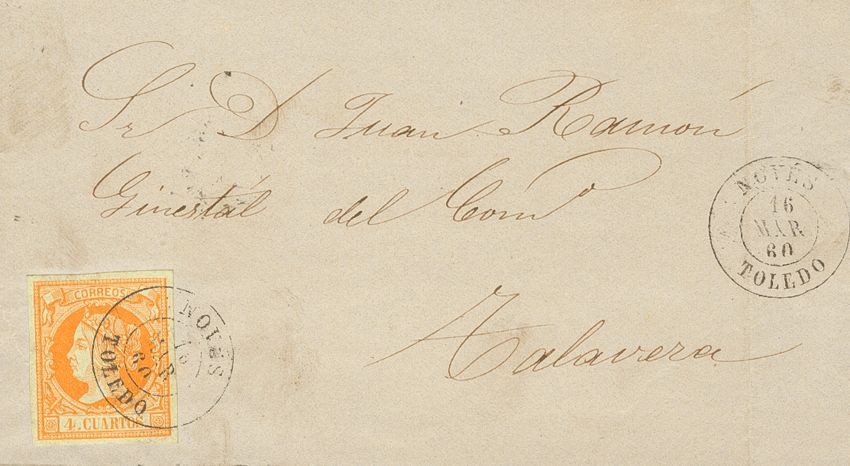 Sr D Juan Ramón
Ginestál del Comº
Talavera
NOVÉS
16
MAR
60
TOLEDO
CORREOS
4 CUARTOS
NOVÉS
16
MAR
60
TOLEDO